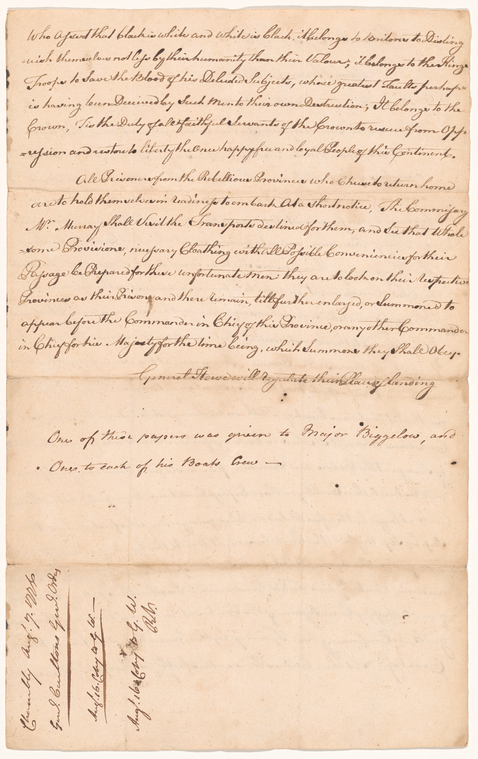 who assert that black is white and white is black, it belongs to Britons to Disting
uish themselves not less by their humanity than their Valour, it belongs to the Kings
Troops to Save the Blood of his Deluded Subjects, whose greatest Faults perhaps
is having been Deceived by Such Men to their own Destruction; It belongs to the
Crown, 'Tis the Duty of all faithful Servants of the Crown to rescue from Opp-
ression and restore to liberty the once happy free and loyal People of this Continent.
All Prisoners from the Rebellious Provinces who Chuse to return home
are to hold themselves in readiness to embark at a Short notice, The Commissary
Mr. Murray Shall Visit the Transports destined for them, and See that Whole
-some Provisions, necessary Cloathing with all Possible Conveniences for their
Passage be Prepared for these unfortunate men they are to look on their respective
Provinces as their Prisons and there remain, till further enlarged, or Summoned to
appear before the Commander in Chief of this Province, or any other Commander
in Chief for his Majesty for the time being, which Summons they Shall Obey.
General Howe will regulate their Place of landing
One of these papers was given to Major Biggelow, and
One, to each of his Boats Crew —
Chamblé Augt. 7. 1776
Genl. Carltons Genl. Orders
Augt. 16 Copy to G. W. —
Augt. 16 Copy to G. W.